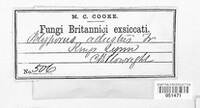 M. C. COOKE.
Fungi Britannici exsiccati.
Polyporus adustus Fr
Kings Lynn
C B Plowright
No. 506
651471